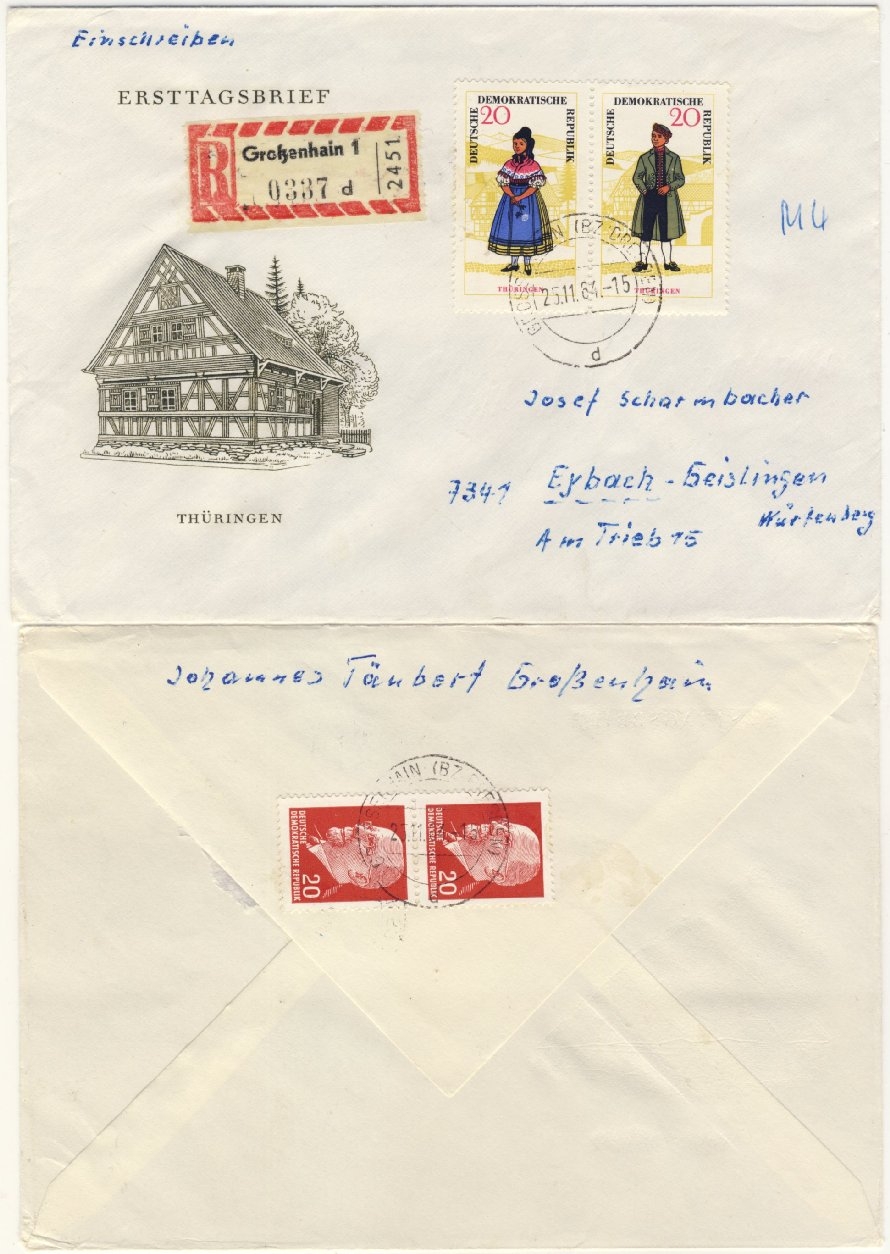 Einschreiben
ERSTTAGSBRIEF
R
Großenhain 1
0337 d
2451
DEUTSCHE DEMOKRATISCHE REPUBLIK
20
THÜRINGEN
DEUTSCHE DEMOKRATISCHE REPUBLIK
20
THÜRINGEN
(BZ DRESDEN)
25.11.64.-15
d
M4
Josef Scharmbacher
7341 Eybach - Geislingen
Würtenberg
Am Trieb 15
THÜRINGEN
Johannes Täubert Großenhain
DEUTSCHE
DEMOKRATISCHE REPUBLIK
20
DEUTSCHE
DEMOKRATISCHE REPUBLIK
20